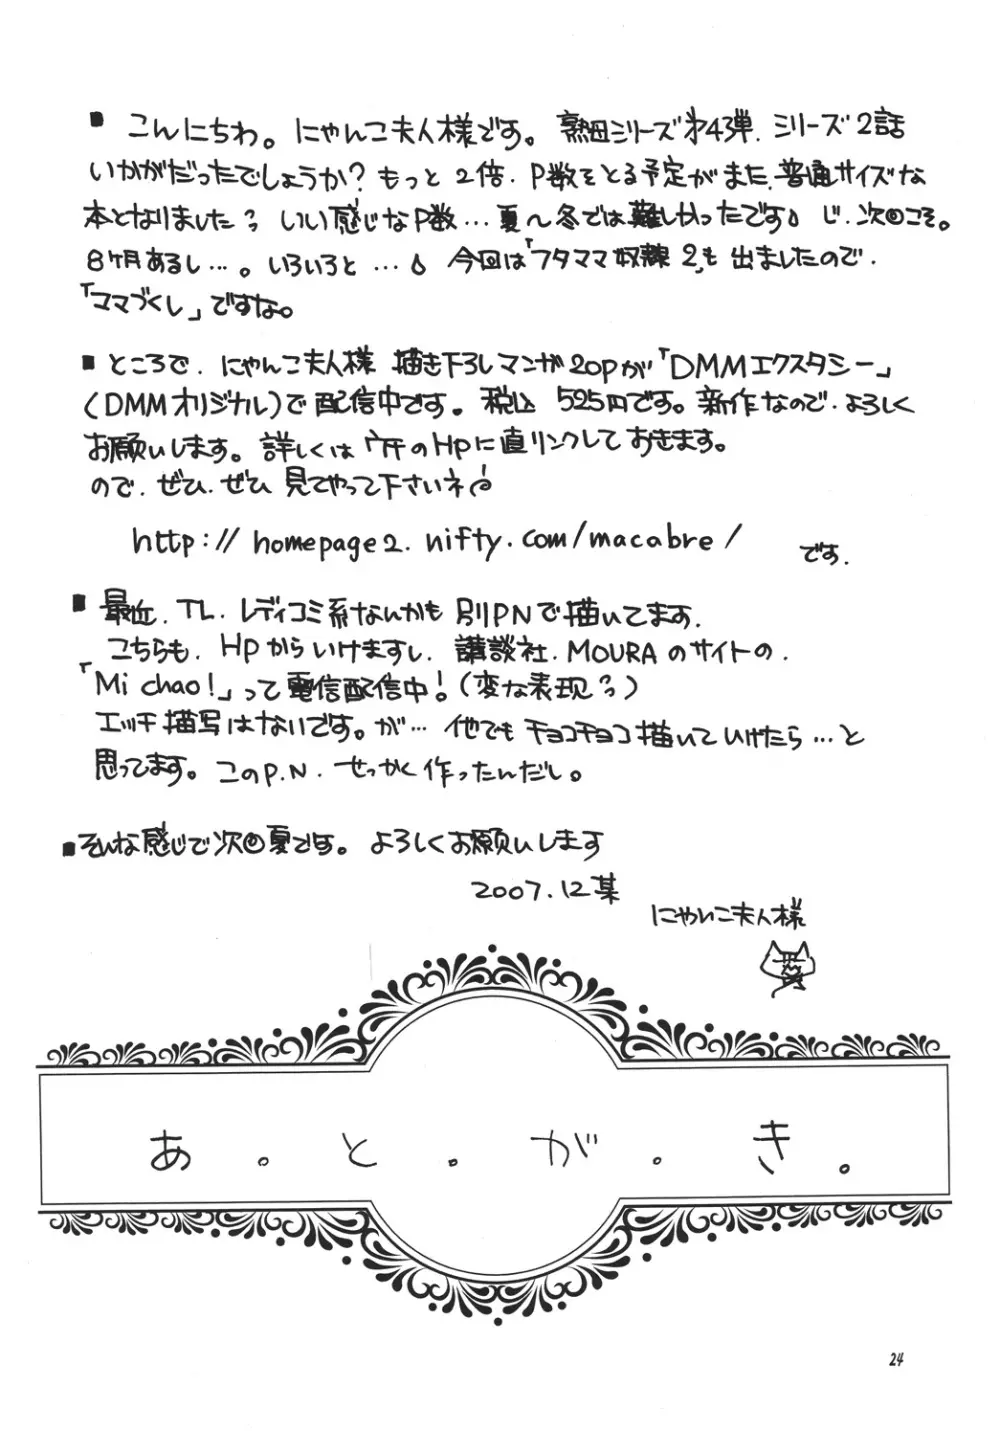 ■ こんにちわ。にゃんこ夫人様です。熟母シリーズ才4弾.シリーズ2話
いかがだったでしょうか?もっと2倍.P数をとる予定がまた.普通サイズな
本となりました いい感じなP数…夏〜冬では難しかったです じ.次こそ。
8ケ月あるし…。いろいろと… 今回は「フタママ奴隷2」も出ましたので.
「ママづくし」ですな。
■ところで.にゃんこ夫人様 描き下ろしマンガ20Pが「DMMエクスタシー」
(DMMオリジナル)で配信中です。税込 525円です。新作なので.よろしく
お願いします。詳しくはウチのHPに直リンクしておきます。
ので.ぜひ.ぜひ見てやって下さいネ
http://homepage2.nifty.com/macabre/ です.
■最近.TL.レディコミ系なんかも別PNで描いてます.
こちらも.HPからいけますし.講談社.MOURAのサイトの.
「Mi chao!」って電信配信中!(変な表現)
エッチ描写はないです。が…他でもチョコチョコ描いていけたら…と
思ってます。このP.N.せっかく作ったんだし。
■そんな感じで次の夏です。よろしくお願いします
2007.12某
にゃんこ夫人様
あ。と。が。き。
24